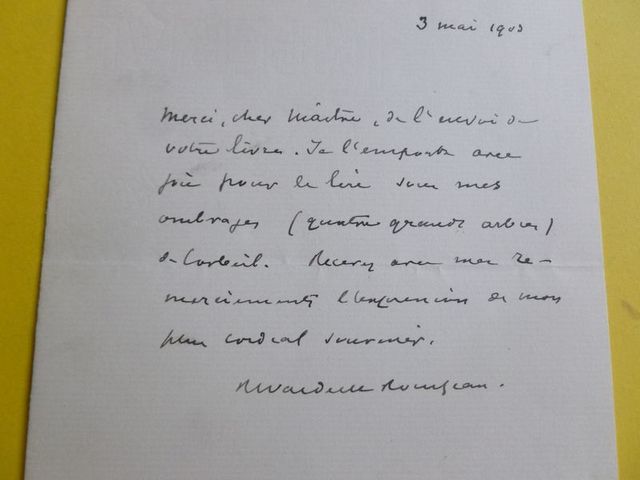 3 mai 1903
Merci, cher Maître, de l'envoi de
votre livre. Je l'emporte avec
joie pour le lire sous mes
ombrages (quatre grands arbres)
de Corbeil. Recevez avec mes re-
merciements l'expression de mon
plus cordial souvenir.
Waldeck Rousseau.